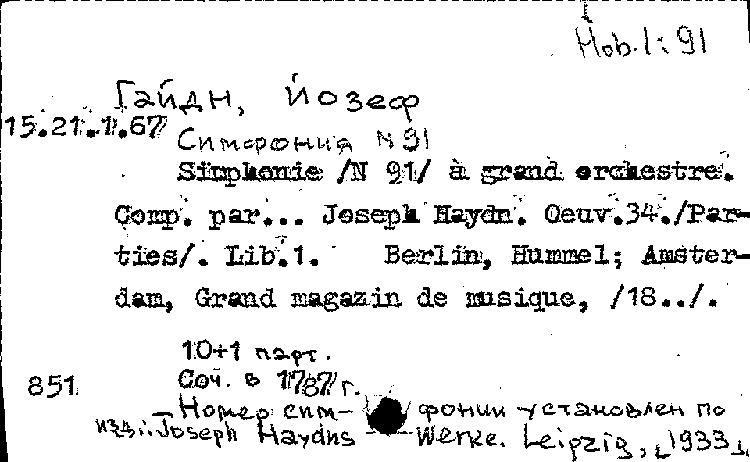 Hob.I: 91
Гайдн, Йозеф
15.21.1.67
Симфония N 91
Simphonie /N 91/ à grand orchestre.
Comp. par... Joseph Haydn. Oeuv.34./Par-
ties/. Lib.1. Berlin, Hummel; Amster-
dam, Grand magazin de musique, /18../.
10+1 парт.
851 Соч. в 1787 г.
Номер сим- фонии установлен по
изд.: Joseph Haydns Werke. Leipzig, [1933],